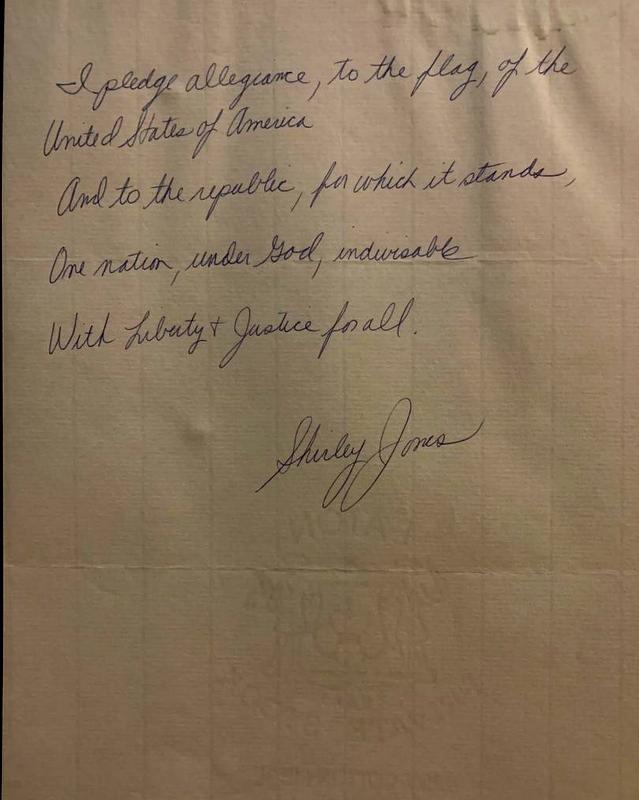 I pledge allegiance, to the flag, of the
United States of America
And to the republic, for which it stands,
One nation, under God, indivisable
With Liberty + Justice for all.
Shirley Jones